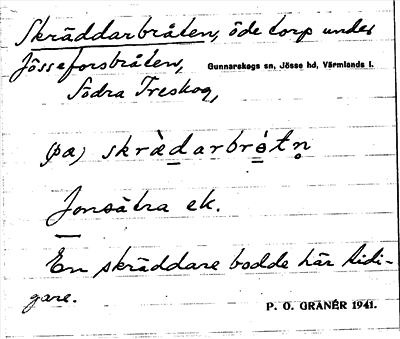 Skräddarbråten, öde torp under
Jösseforsbråten, Gunnarskogs sn, Jösse hd, Värmlands l.
Södra Treskog,
(pa) skrὰdarbrótn̥
Jonsätra ek.
En skräddare bodde här tidi-
gare.
P. O. GRANÉR 1941.